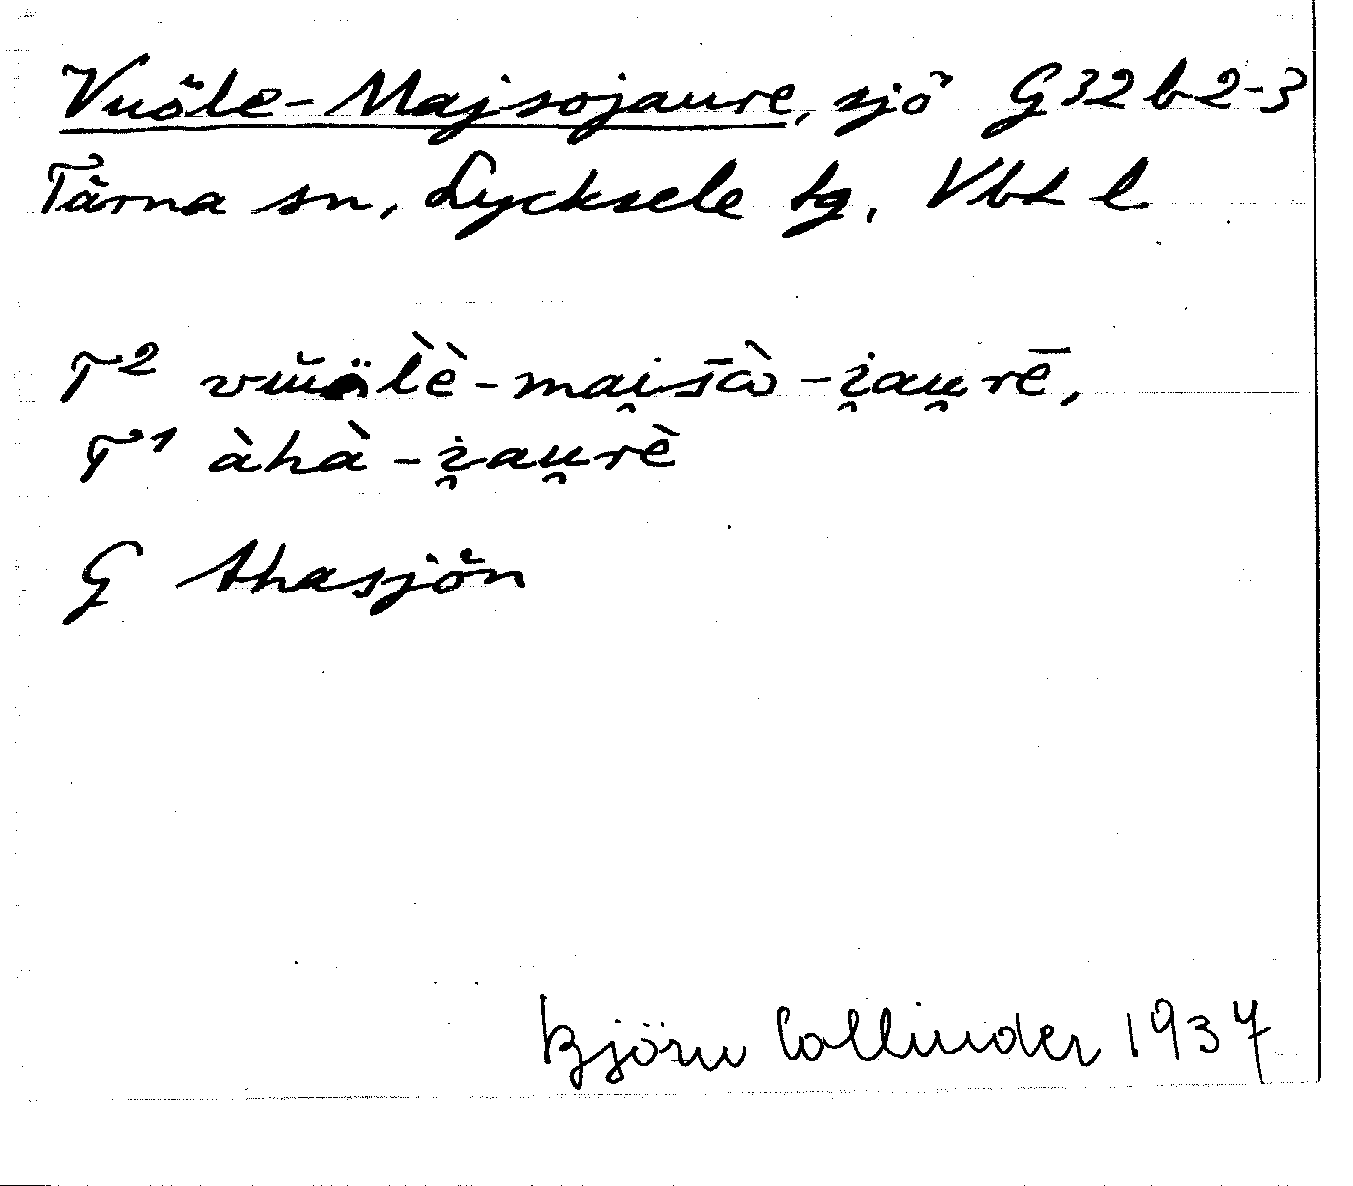 Vuöle-Majsojaure, sjö G32b2-3
Tärna sn, Lycksele tg, Vbt l
T² vŭälὲ̀-mai̯s̄ɑ̀-i̯au̯rē,
T¹ àhà-i̯au̯rè
G Ahasjön
Björn Collinder 1937